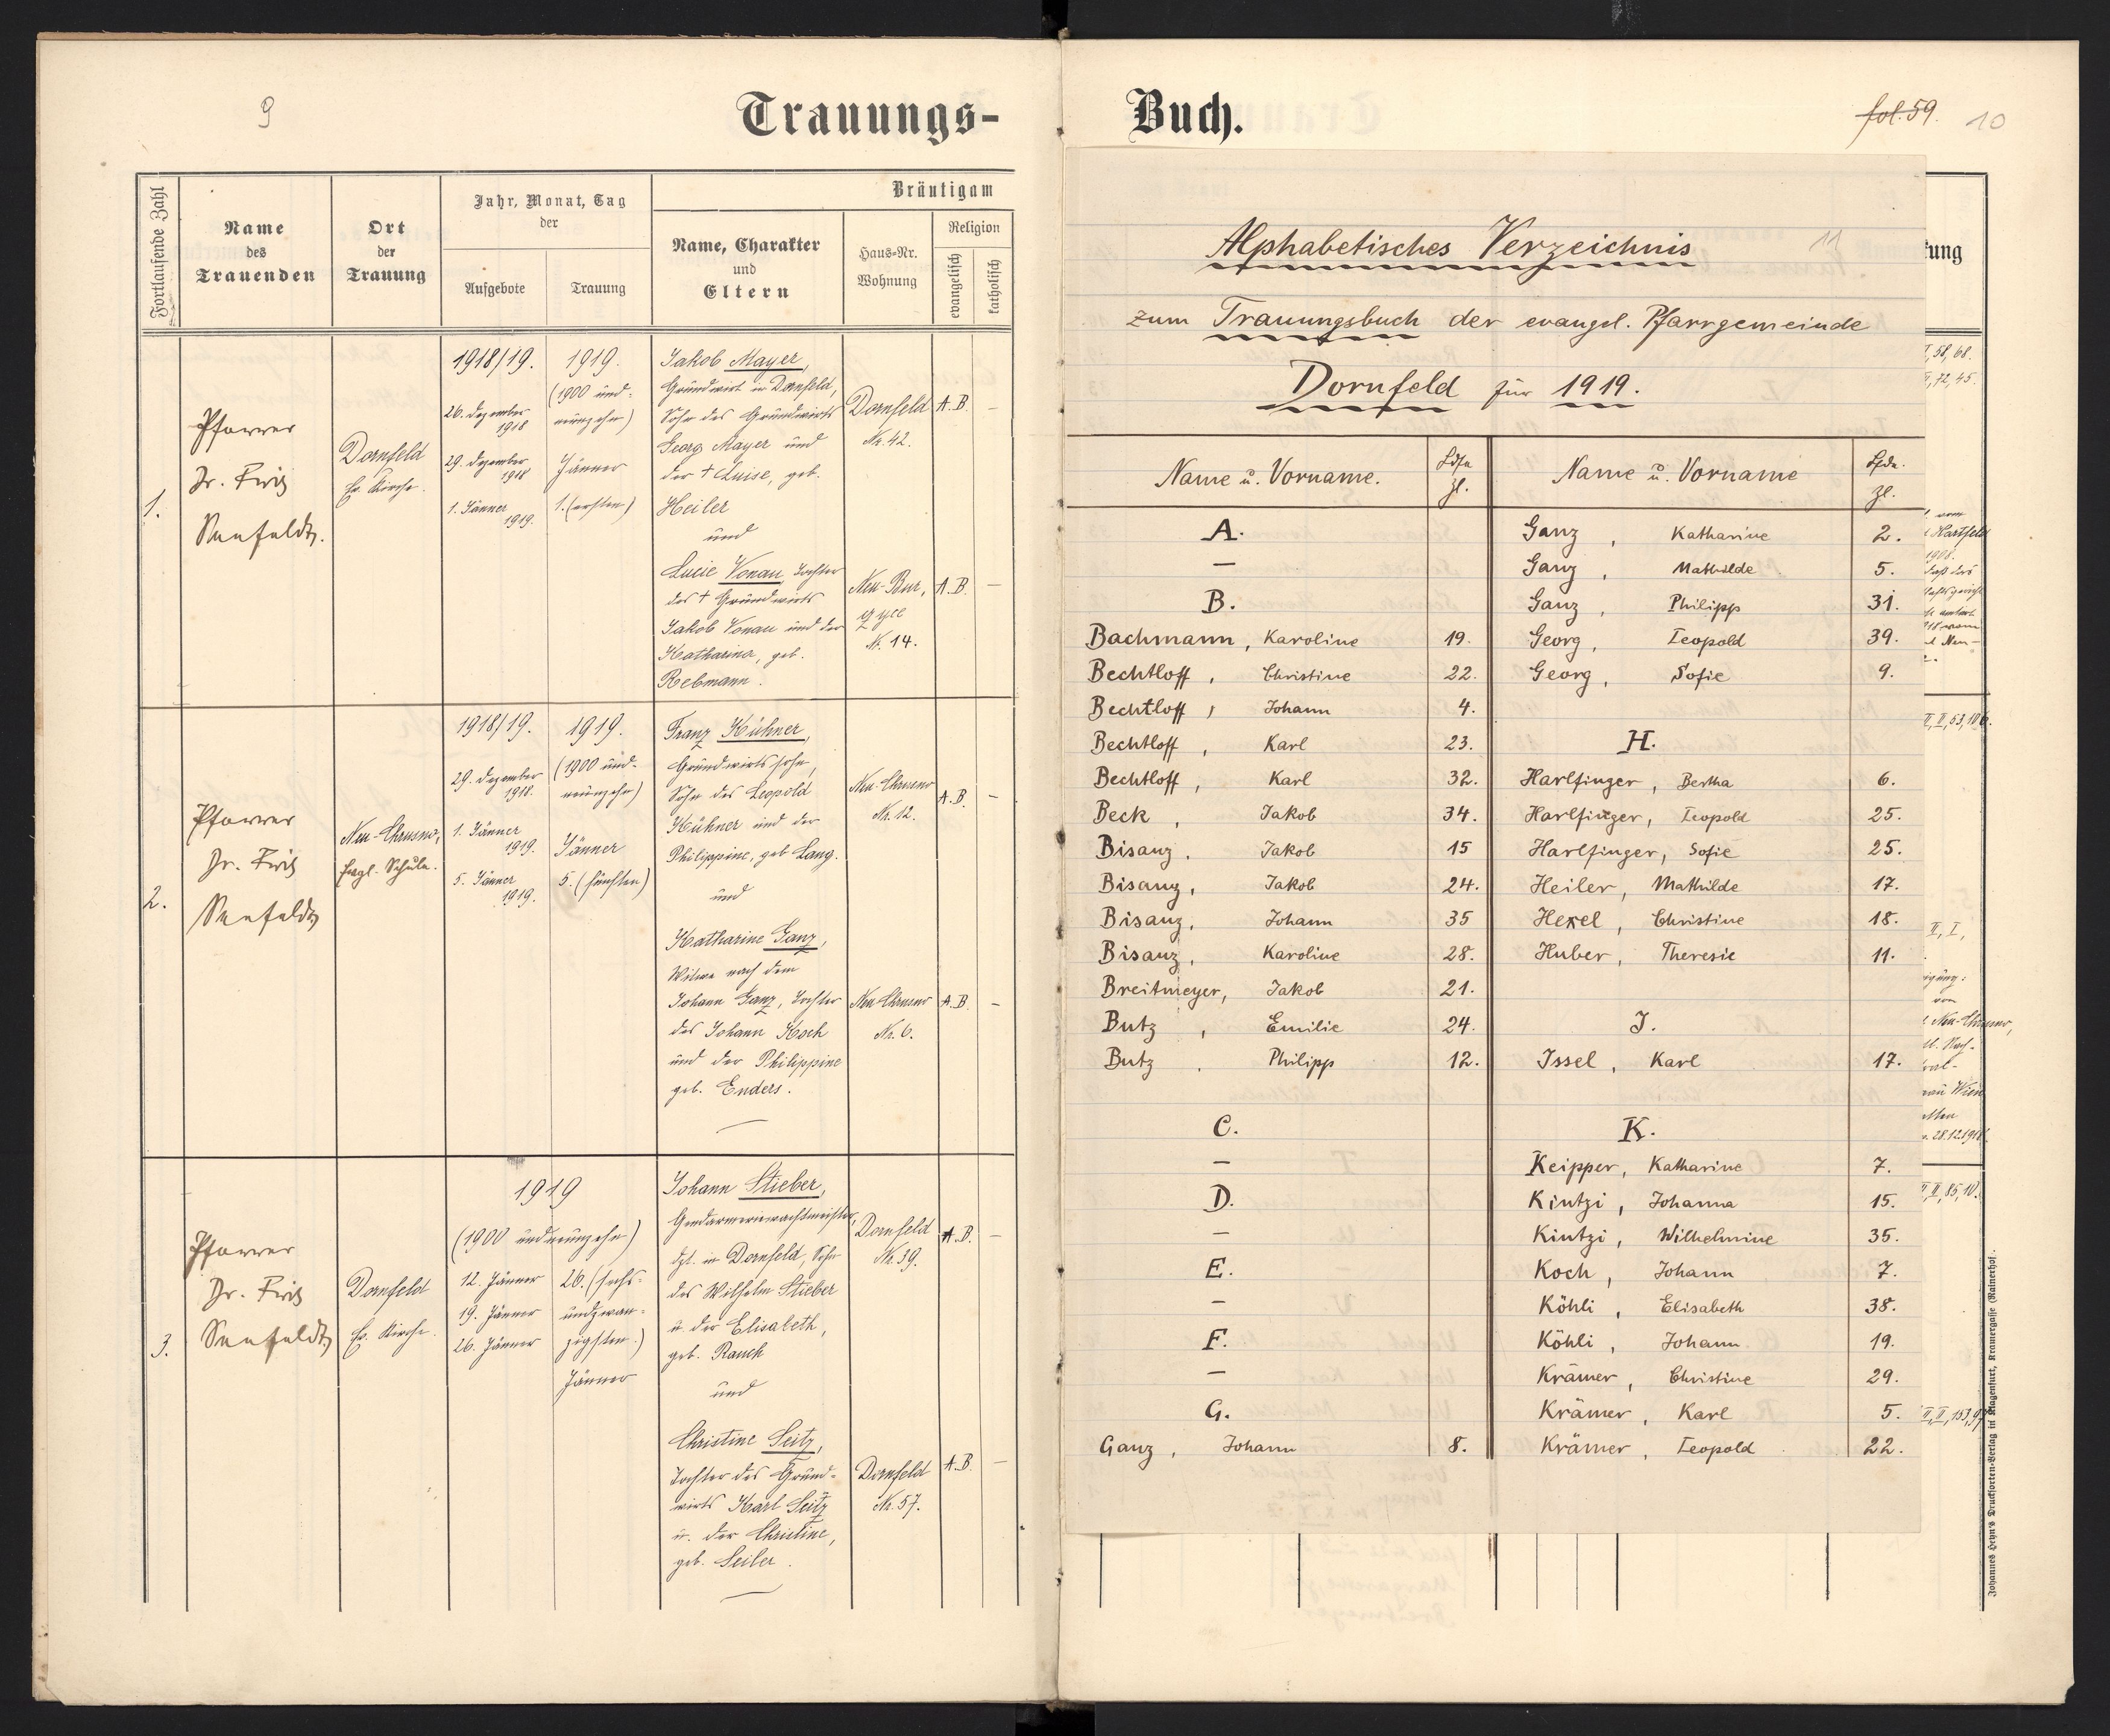 9
Trauungs-
Fortlaufende Zahl
Name
des
Trauenden
Ort
der
Trauung
Jahr, Monat, Tag
der
Aufgebote
Trauung
Bräutigam
Name, Charakter
und
Eltern
Haus-Nr.
Wohnung
Religion
evangelisch
katholisch
1.
Pfarrer
Dr. Fritz
Seefeldt.
Dornfeld
Ev. Kirche.
1918/19.
26. Dezember
1918
29. Dezember
1918
1. Jänner
1919.
1919.
(1900 und-
neunzehn)
Jänner
1. (ersten)
Jakob Mayer,
Grundwirt in Dornfeld,
Sohn des Grundwirts
Georg Mayer und
der † Luise, geb.
Heiler
und
Lucie Vonau, Tochter
des † Grundwirts
Jakob Vonau und der
Katharina, geb.
Rebmann.
Dornfeld
Nr. 42.
A.B.
–
Nr. 14.
A.B.
–
2.
Pfarrer
Dr. Fritz
Seefeldt
Neu-Chrusno,
Evgl. Schule.
1918/19.
29. Dezember
1918.
1. Jänner
1919.
5. Jänner
1919.
1919.
(1900 und-
neunzehn)
Jänner
5. (fünften)
Franz Kühner,
Grundwirtssohn,
Sohn des Leopold
Kühner und der
Philippine, geb Lang.
und
Katharine Ganz,
Witwe nach dem
Johann Ganz, Tochter
des Johann Koch
und der Philippine
geb. Enders.
Neu-Chrusno
Nr. 12.
A.B.
–
Neu Chrusno
Nr. 6.
A.B.
–
3.
Pfarrer
Dr. Fritz
Seefeldt
Dornfeld
Ev. Kirche.
1919
(1900 und neunzehn)
12. Jänner
19. Jänner
26. Jänner
26. (sechs-
undzwan-
zigsten.)
Jänner
Johann Stieber,
Gendarmeriewachtmeister,
dzt. in Dornfeld, Sohn
des Wilhelm Stieber
u. der Elisabeth,
geb. Rauch
und
Christine Seitz,
Tochter des Grund-
wirts Karl Seitz
u. der Christine,
geb. Seiler.
Dornfeld
Nr. 39.
A.B.
–
Dornfeld
Nr. 57.
A.B.
–
Buch.
fol. 59.
10
11
Alphabetisches Verzeichnis
zum Trauungsbuch der evangel. Pfarrgemeinde
Dornfeld für 1919.
Name u. Vorname.
Lfde
Zl.
A.
–
B.
Bachmann, Karoline 19.
Bechtloff, Christine 22.
Bechtloff, Johann 4.
Bechtloff, Karl 23.
Bechtloff, Karl 32.
Beck, Jakob 34.
Bisanz, Jakob 15
Bisanz, Jakob 24.
Bisanz, Johann 35
Bisanz, Karoline 28.
Breitmeyer, Jakob 21.
Butz, Emilie 24.
Butz, Philipp 12.
C.
–
D.
–
E.
–
F.
–
G.
Ganz, Johann 8.
Name u. Vorname
Lfde.
Zl.
Ganz, Katharine 2.
Ganz, Mathilde 5.
Ganz, Philipp 31.
Georg, Leopold 39.
Georg, Sofie 9.
H.
Harlfinger, Bertha 6.
Harlfinger, Leopold 25.
Harlfinger, Sofie 25.
Heiler, Mathilde 17.
Hexel, Christine 18.
Huber, Theresie 11.
J.
Issel, Karl 17.
K.
Keipper, Katharine 7.
Kintzi, Johanna 15.
Kintzi, Wilhelmine 35.
Koch, Johann 7.
Köhli, Elisabeth 38.
Köhli, Johann 19.
Krämer, Christine 29.
Krämer, Karl 5.
Krämer, Leopold 22.
tung
58, 68.
72, 45.
Hartfeld
1908.
II, I,
von
Wien
28.12.1918
85, 10.
Johannes Heyn's Drucksorten-Verlag in Klagenfurt, Kramergasse (Rainerhof).